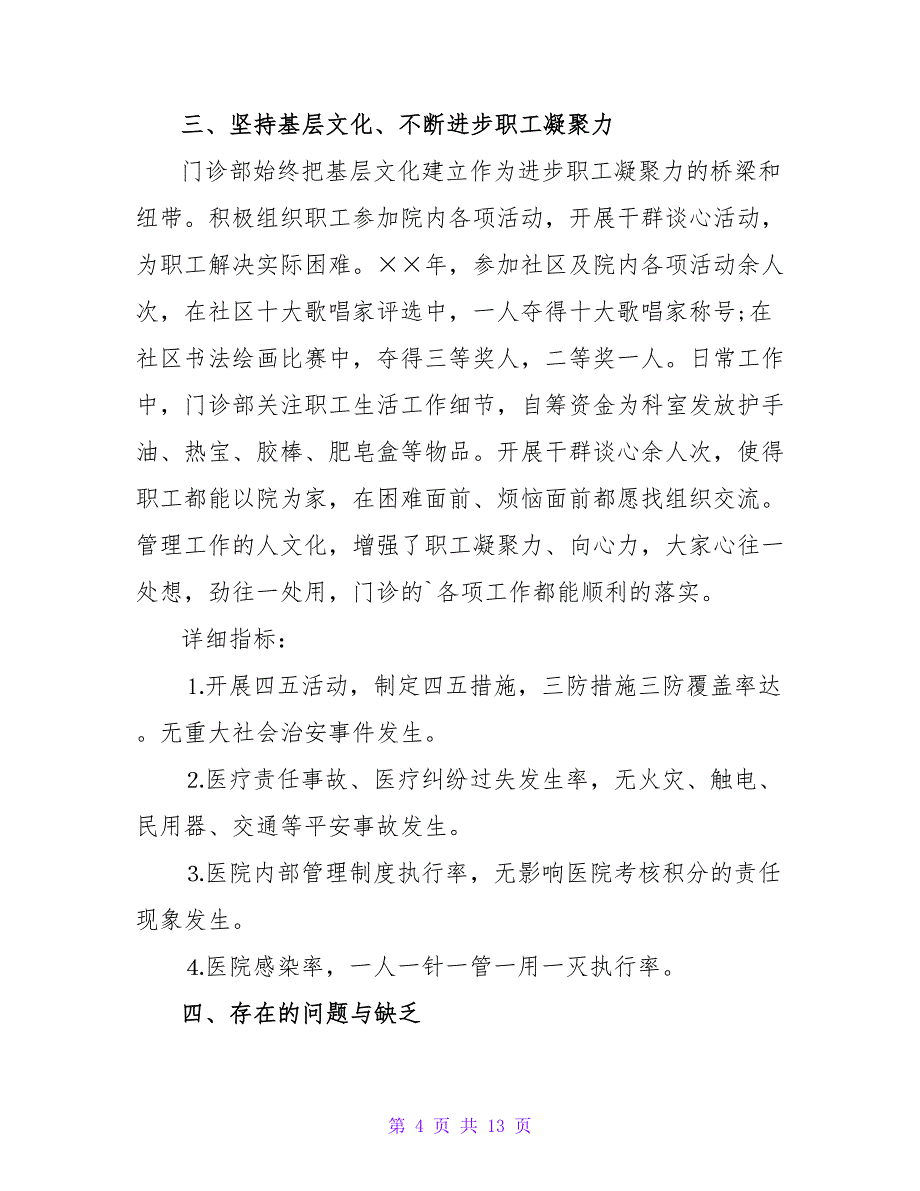 三、坚持基层文化、不断进步职工凝聚力
门诊部始终把基层文化建立作为进步职工凝聚力的桥梁和
纽带。积极组织职工参加院内各项活动，开展干群谈心活动，
为职工解决实际困难。××年，参加社区及院内各项活动余人
次，在社区十大歌唱家评选中，一人夺得十大歌唱家称号;在
社区书法绘画比赛中，夺得三等奖人，二等奖一人。日常工作
中，门诊部关注职工生活工作细节，自筹资金为科室发放护手
油、热宝、胶棒、肥皂盒等物品。开展干群谈心余人次，使得
职工都能以院为家，在困难面前、烦恼面前都愿找组织交流。
管理工作的人文化，增强了职工凝聚力、向心力，大家心往一
处想，劲往一处用，门诊的`各项工作都能顺利的落实。
详细指标：
⒈开展四五活动，制定四五措施，三防措施三防覆盖率达
。无重大社会治安事件发生。
⒉医疗责任事故、医疗纠纷过失发生率，无火灾、触电、
民用器、交通等平安事故发生。
⒊医院内部管理制度执行率，无影响医院考核积分的责任
现象发生。
⒋医院感染率，一人一针一管一用一灭执行率。
四、存在的问题与缺乏
第 4 页 共 13 页